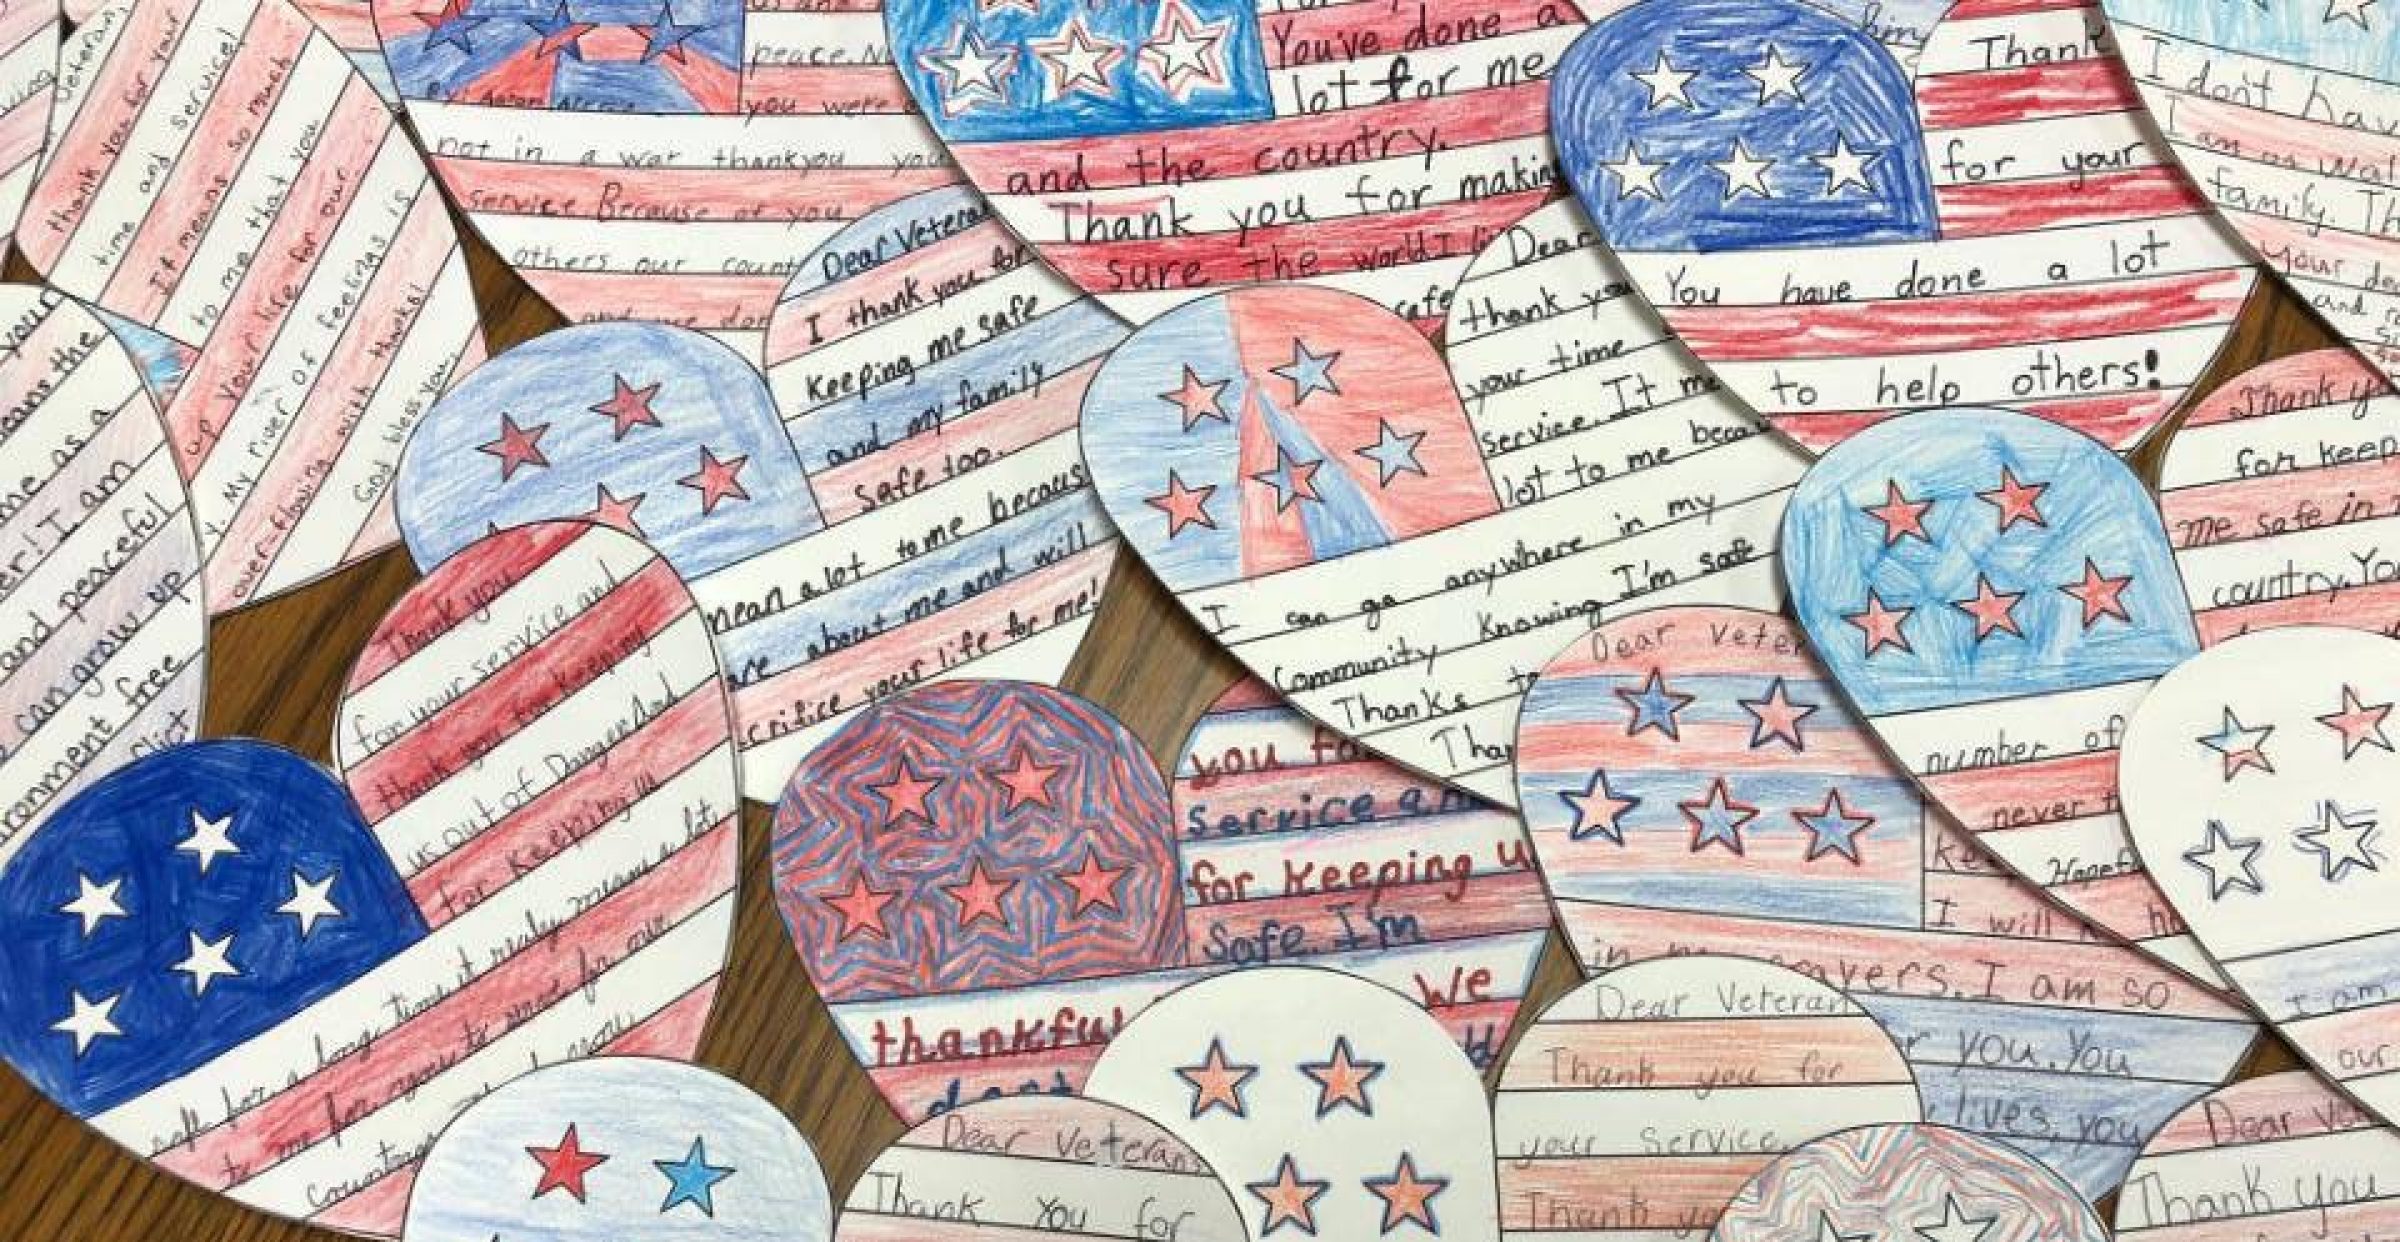 Veteran,
thank you for your
time and service!
It means so much
to me that you
up your life for our
y. My river of feelings is
over-flowing with thanks!
God bless you,
peace. N
you were
not in a war thankyou you
service Because of you
others our count
and we don
You've done a
lot for me
and the country.
Thank you for making
sure the world I li
safe
Thank
for your
You have done a lot
to help others!
I don't hav
I am
family. Th
Your de
and
your
means the
me as a
er! I am
and peaceful
can grow up
ironment free
flict
Dear Vetera
I thank you for
keeping me safe
and my family
safe too.
mean a lot to me becaus
re about me and will
crifice your life for me!
Dear
thank you
your time
service. It me
lot to me becau
I can go anywhere in my
Community Knowing I'm safe
Thanks to
Than
Thank y
for keep
me safe in
country. Yo
Thank you
for your service and
thank you for keeping
us out of Danger And
for keeping us
safe for a long time it realy means a lot
to me for you to
country
you fo
service an
for Keeping u
Safe. I'm
thankful We
dont
Dear Veter
ke
I will
in my prayers. I am so
r you. You
lives, you
number of
never
Hopef
I am
our
Dear Veteran
Thank you for
your service.
Thank yo
Dear Veteran
Thank You for
Dear Ve
Thank you